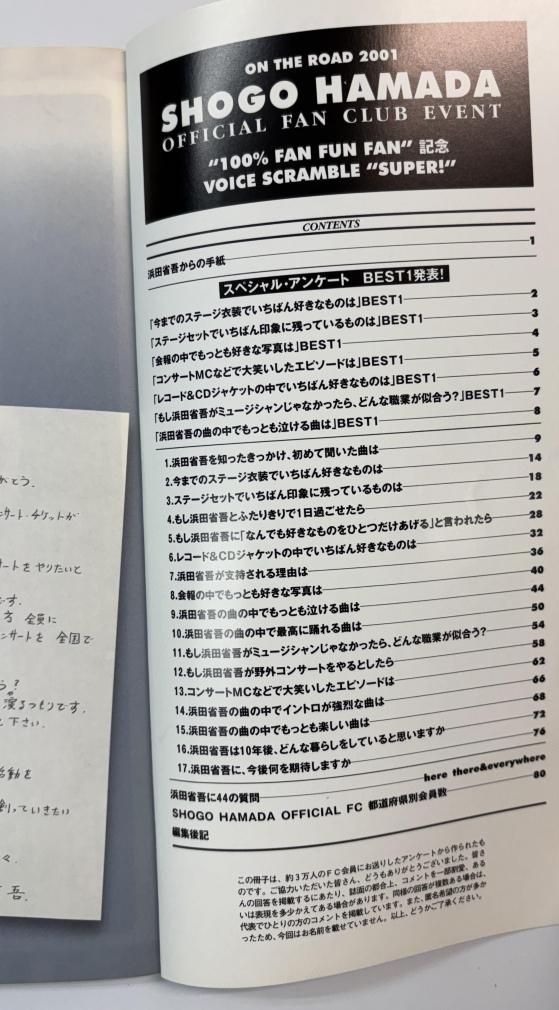 がとう.
ンサート・チケットが
ートを やりたいと
す.
方 全員に
ンサートを 全国で
う?
演るつもりです.
て下さい.
活動を
創っていきたい
々.
吾.
ON THE ROAD 2001
SHOGO HAMADA
OFFICIAL FAN CLUB EVENT
"100% FAN FUN FAN" 記念
VOICE SCRAMBLE "SUPER!"
CONTENTS
浜田省吾からの手紙 1
スペシャル・アンケート BEST1発表!
「今までのステージ衣装でいちばん好きなものは」BEST1 2
「ステージセットでいちばん印象に残っているものは」BEST1 3
「会報の中でもっとも好きな写真は」BEST1 4
「コンサートMCなどで大笑いしたエピソードは」BEST1 5
「レコード&CDジャケットの中でいちばん好きなものは」BEST1 6
「もし浜田省吾がミュージシャンじゃなかったら、どんな職業が似合う?」BEST1 7
「浜田省吾の曲の中でもっとも泣ける曲は」BEST1 8
1.浜田省吾を知ったきっかけ、初めて聞いた曲は 9
2.今までのステージ衣装でいちばん好きなものは 14
3.ステージセットでいちばん印象に残っているものは 18
4.もし浜田省吾とふたりきりで1日過ごせたら 22
5.もし浜田省吾に「なんでも好きなものをひとつだけあげる」と言われたら 28
6.レコード&CDジャケットの中でいちばん好きなものは 32
7.浜田省吾が支持される理由は 36
8.会報の中でもっとも好きな写真は 40
9.浜田省吾の曲の中でもっとも泣ける曲は 44
10.浜田省吾の曲の中で最高に踊れる曲は 50
11.もし浜田省吾がミュージシャンじゃなかったら、どんな職業が似合う? 54
12.もし浜田省吾が野外コンサートをやるとしたら 58
13.コンサートMCなどで大笑いしたエピソードは 62
14.浜田省吾の曲の中でイントロが強烈な曲は 66
15.浜田省吾の曲の中でもっとも楽しい曲は 68
16.浜田省吾は10年後、どんな暮らしをしていると思いますか 72
17.浜田省吾に、今後何を期待しますか 76
浜田省吾に44の質問 here there&everywhere
SHOGO HAMADA OFFICIAL FC 都道府県別会員数 80
編集後記
この冊子は、約3万人のFC会員にお送りしたアンケートから作られたも
のです。ご協力いただいた皆さん、どうもありがとうございました。皆さ
んの回答を掲載するにあたり、誌面の都合上、コメントを一部割愛、ある
いは表現を多少かえてある場合があります。同様の回答が複数ある場合は、
代表でひとりの方のコメントを掲載しています。また、匿名希望の方が多か
ったため、今回はお名前を載せていません。以上、どうかご了承ください。